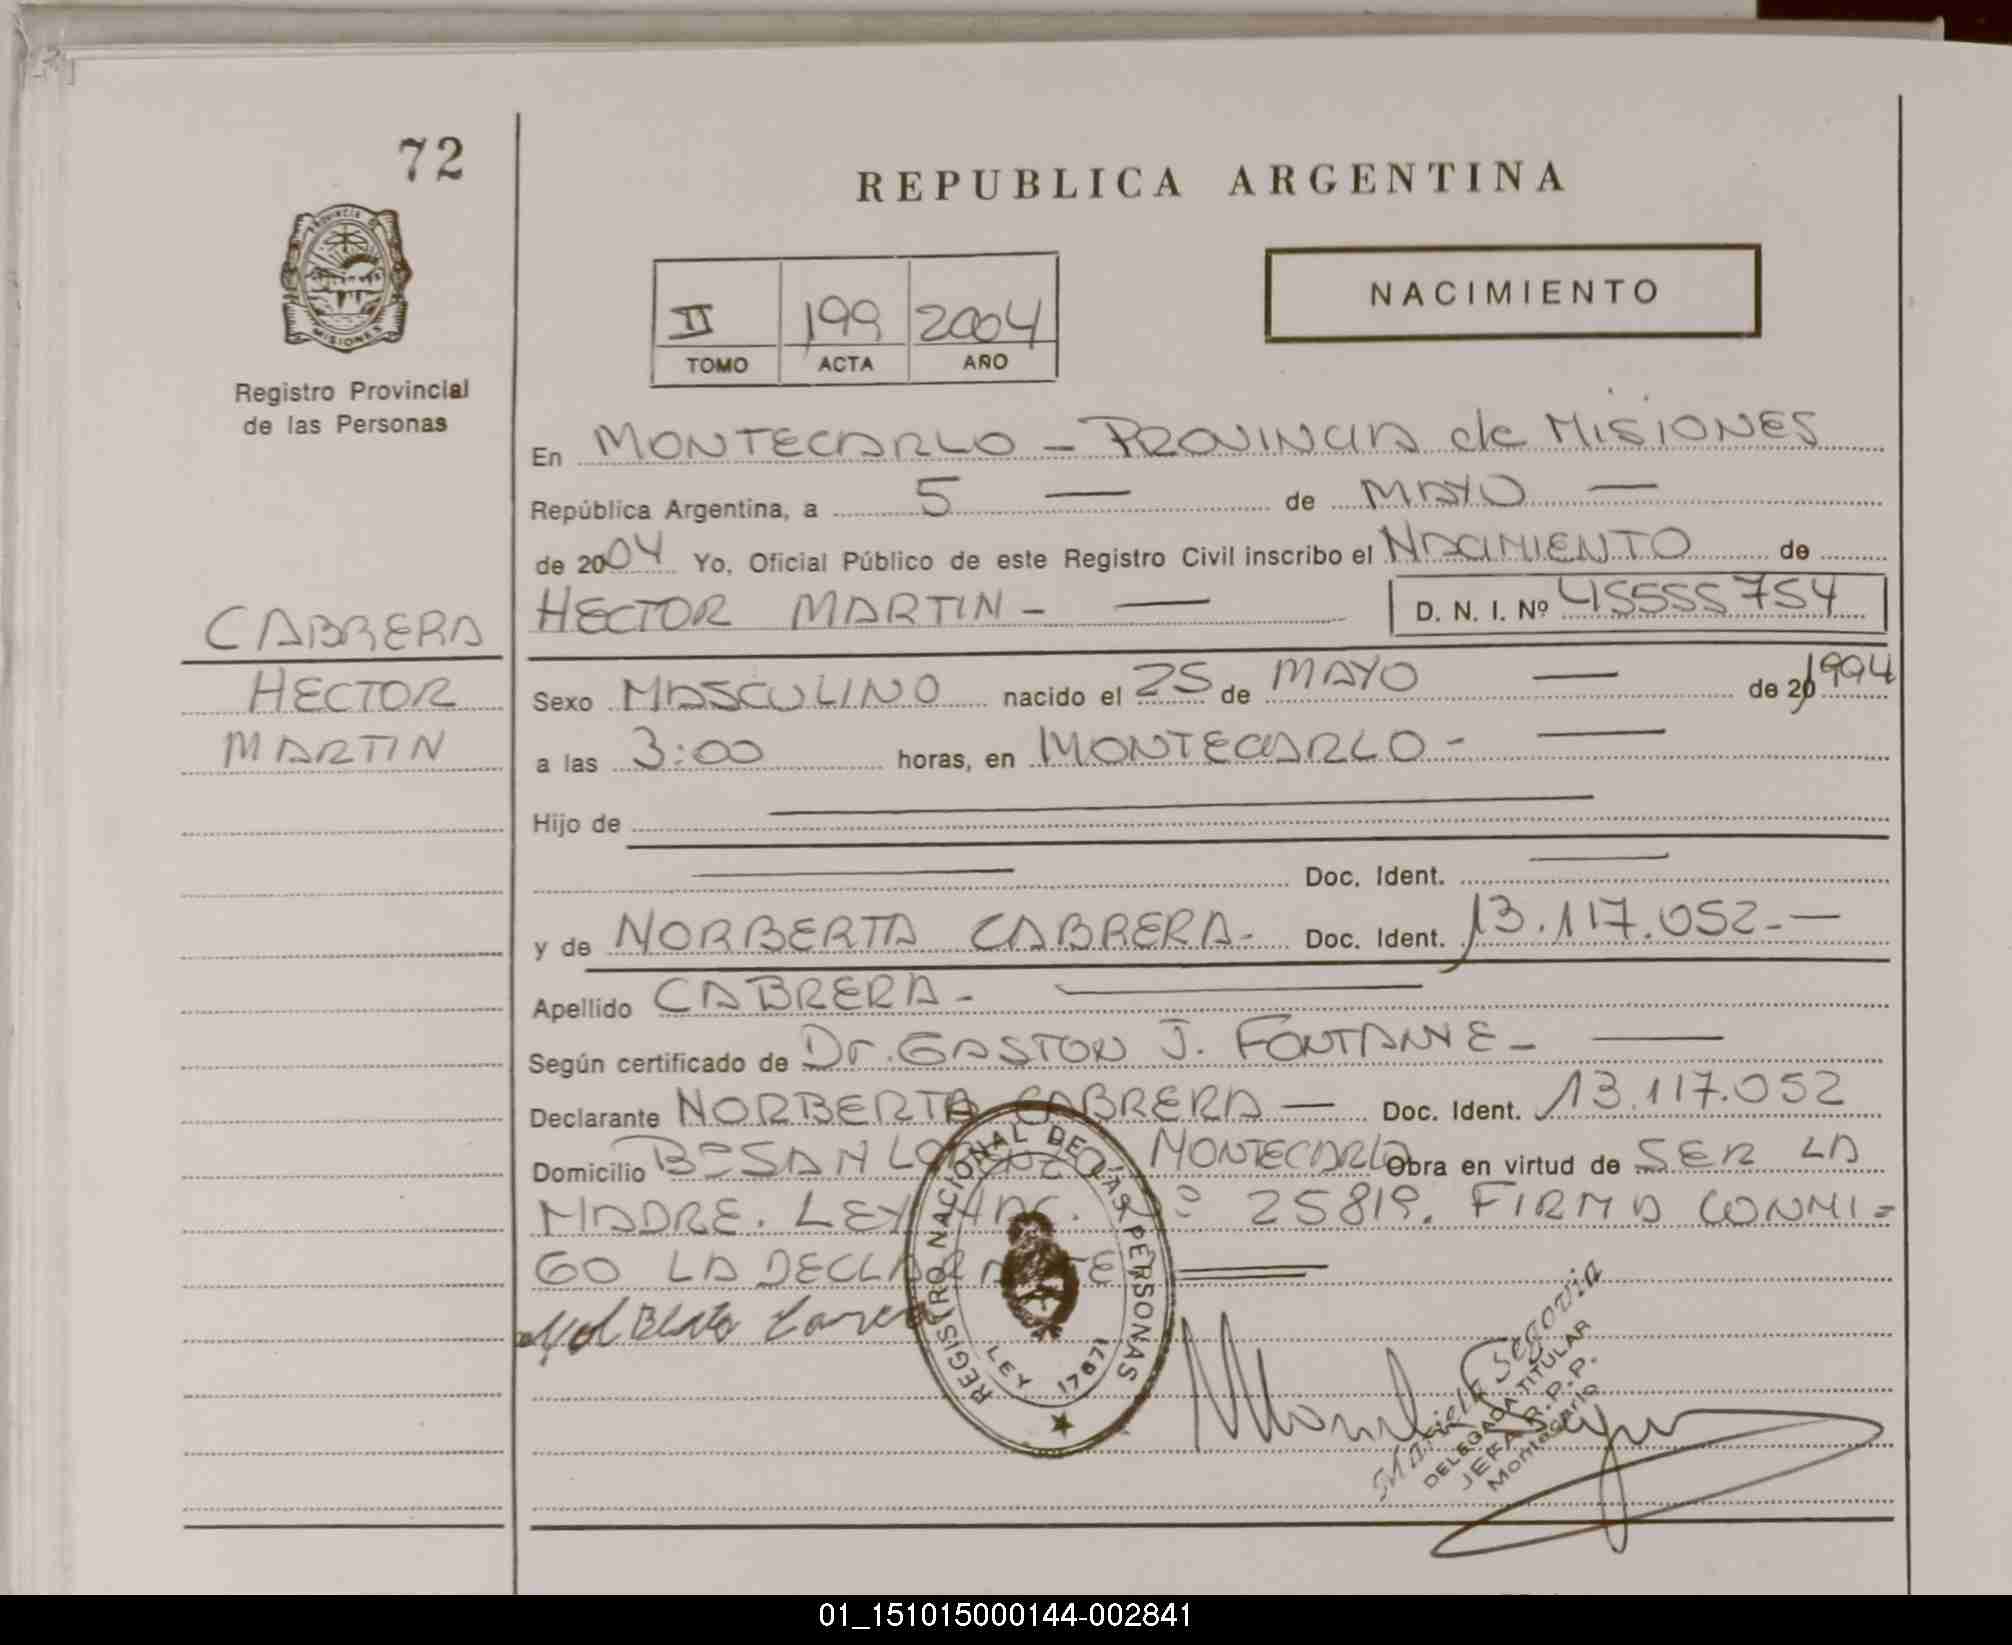 72
REPUBLICA ARGENTINA
PROVINCIA DE
MISIONES
Registro Provincial
de las Personas
NACIMIENTO
II 199 2004
TOMO ACTA AÑO
En MONTECARLO - PROVINCIA de MISIONES
República Argentina, a 5 — de MAYO —
de 2004 Yo, Oficial Público de este Registro Civil inscribo el NACIMIENTO de
HECTOR MARTIN - — D. N. I. Nº 45555754
CABRERA
HECTOR
MARTIN
Sexo MASCULINO nacido el 25 de MAYO — de 1994
a las 3:00 horas, en MONTECARLO - —
Hijo de —
— Doc. Ident. —
y de NORBERTA CABRERA. Doc. Ident. 13.117.052.—
Apellido CABRERA - —
Según certificado de Dr. GASTON J. FONTANNE - —
Declarante NORBERTA CABRERA — Doc. Ident. 13.117.052
Domicilio Bº SAN LORENZO MONTECARLO Obra en virtud de SER LA
MADRE. LEY NAC. Nº 25819. FIRMA CONMI=
GO LA DECLARANTE =
REGISTRO NACIONAL DE LAS PERSONAS
LEY 17671
Mariela Segovia
DELEGADA TITULAR
JEFA R.P.P.
Montecarlo
01_151015000144-002841